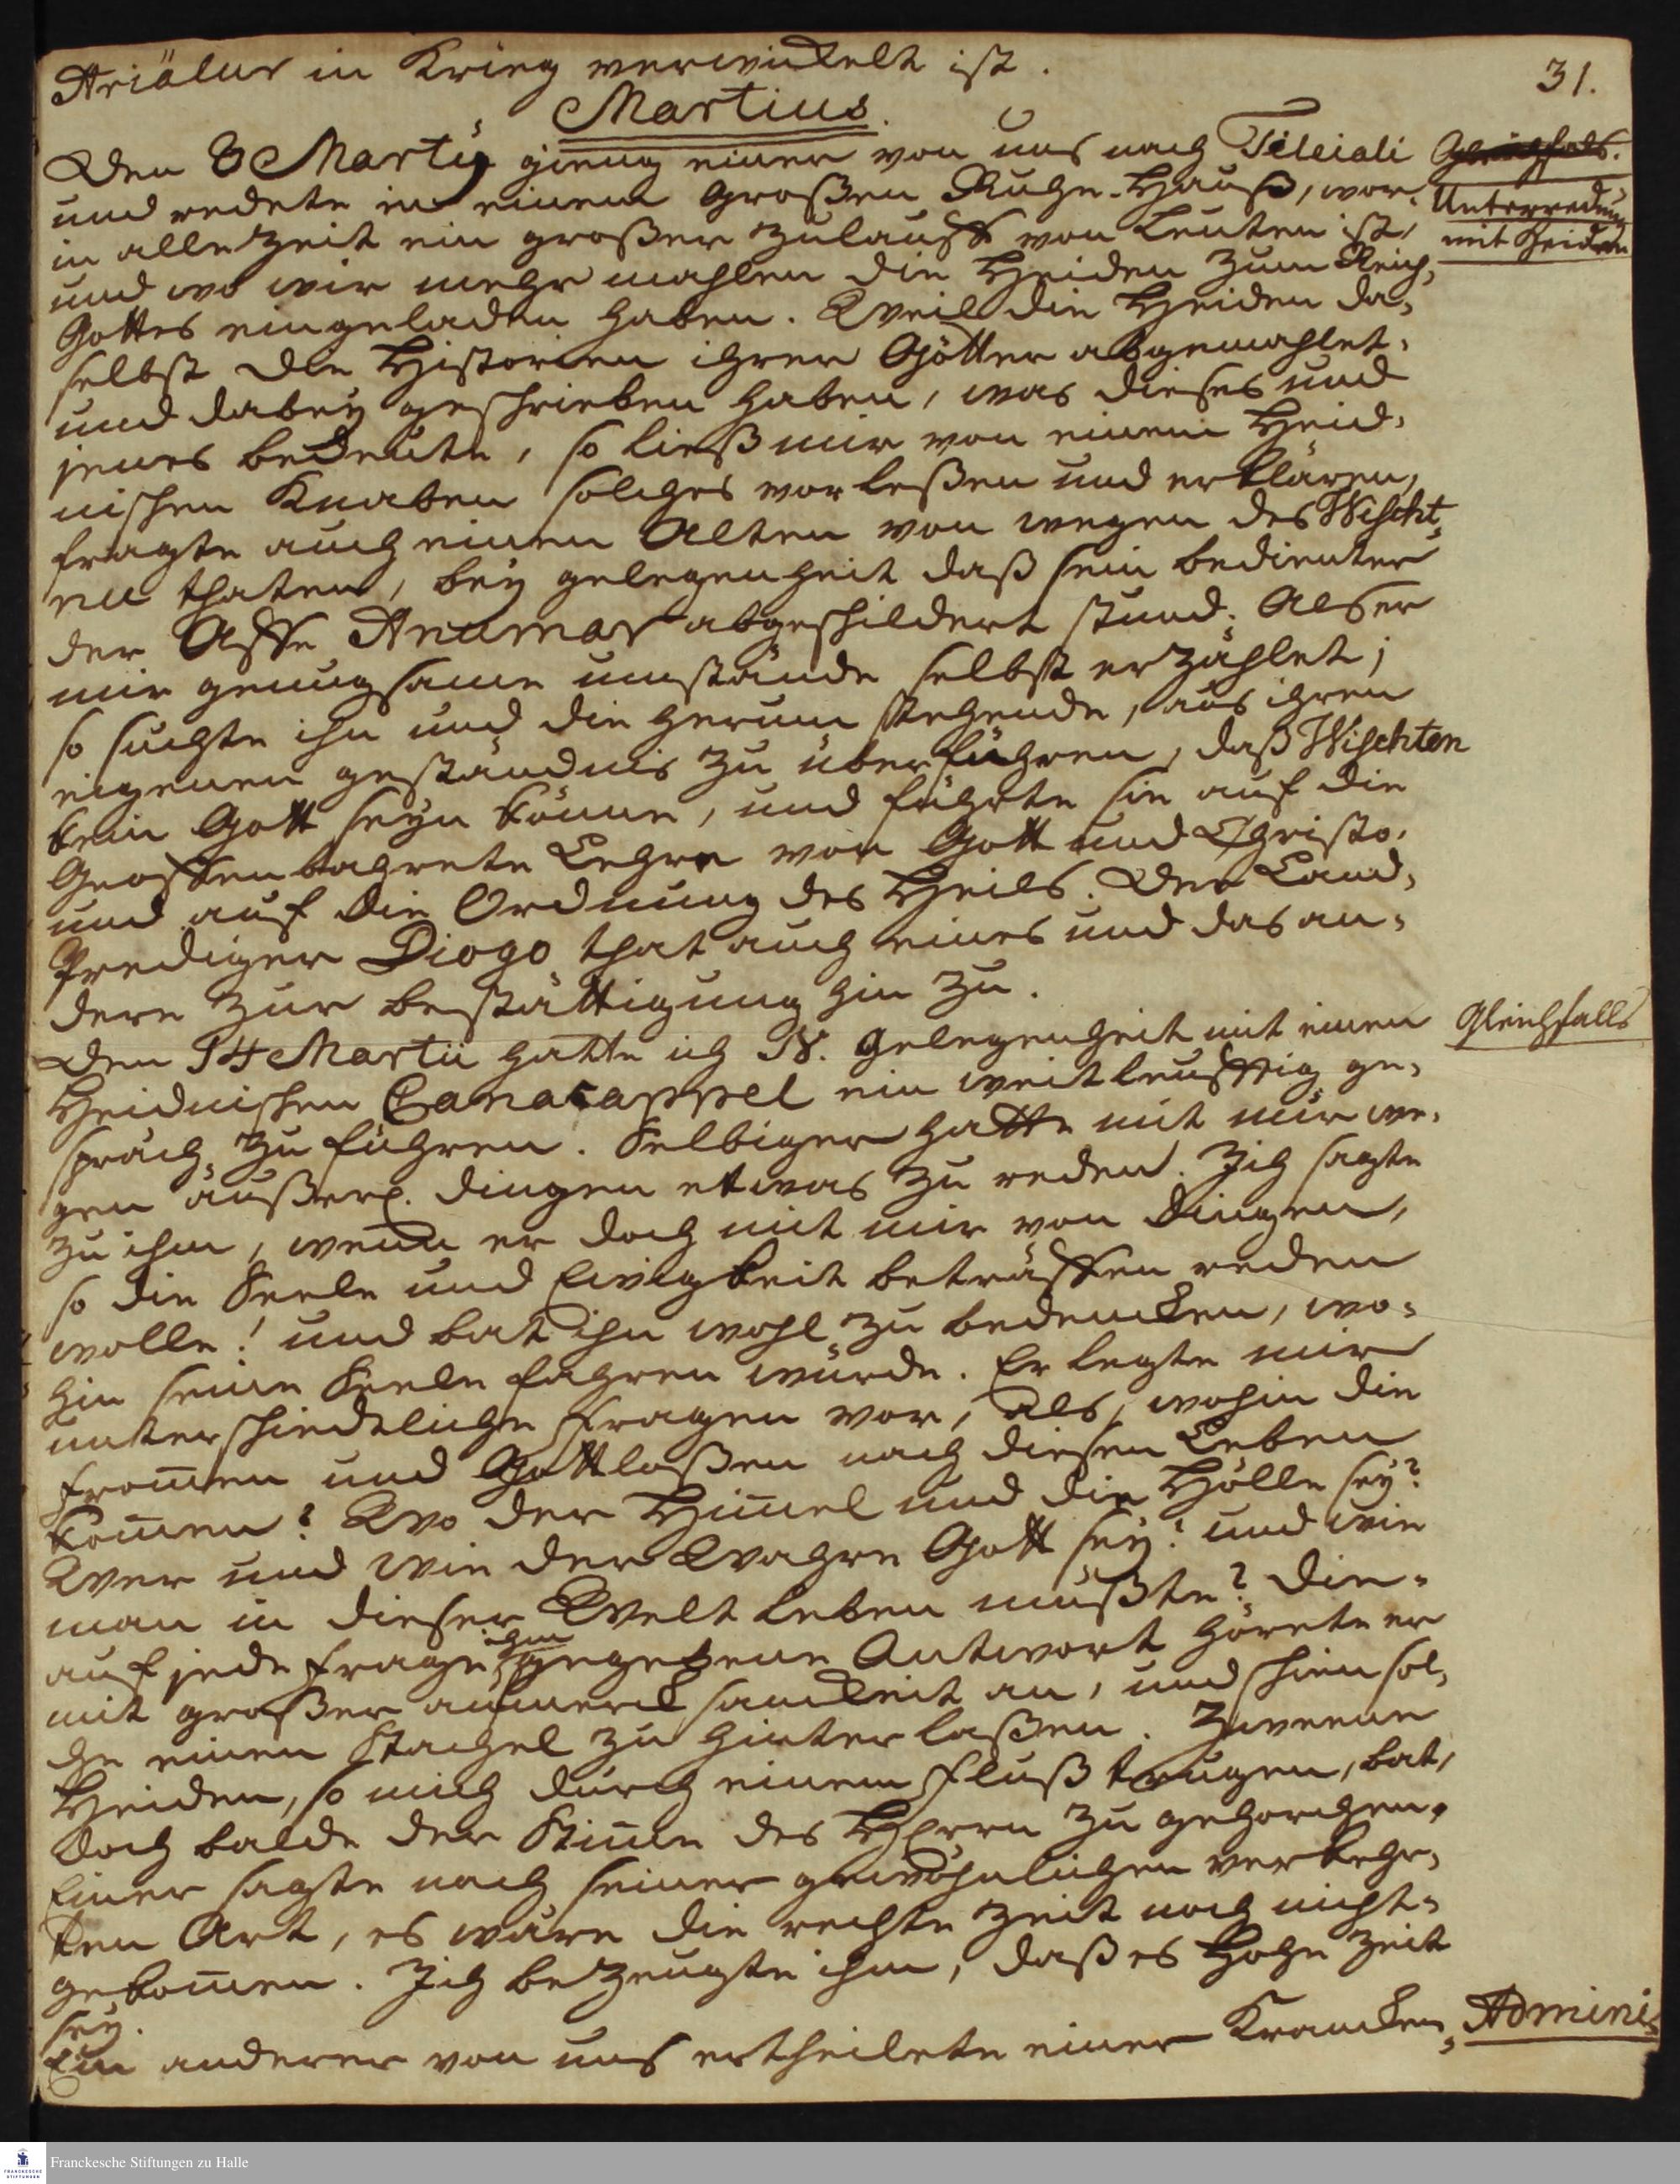 Ariälur in Krieg verwickelt ist.
31.
Martius.
Den 8 Martij gieng einer von uns nach Tileiali
und redete in einem großen Ruhe-Hauß, wor-
in alle Zeit ein großer Zulauff von Leuten ist,
und wo wir mehrmahlen die Heiden zum Reich
Gottes eingeladen haben. Weil die Heiden da-
selbst die Historien ihrer Götter abgemahlet,
und dabey geschrieben haben, was dieses und
jenes bedeute, so ließ mir von einem Heid-
nischen Knaben solches vorleßen und erklären,
fragte auch einen Alten von wegen des Wischt-
nu thaten, bey gelegenheit daß sein bedienter
der Affe Anumar abgeschildert stund. Als er
mir genugsame umstände selbst erzählet;
so suchte ihn und die herum stehende, aus ihren
eigenen geständnis zu überführen, daß Wischten
kein Gott seyn könne, und führte sie auf die
Geoffenbahrete Lehre von Gott und Christo,
und auf die Ordnung des Heils. Der Land-
Prediger Diogo that auch eines und das an-
dere zur bestättigung hin zu.
Den 14 Martii hatte ich N. gelegenheit mit einen
Heidnischen Canacappel ein weitleufftig ge-
spräch zu führen. Selbiger hatte mit mir we-
gen äußerl. dingen etwas zu reden. Ich sagte
zu ihm, wenn er doch mit mir von Dingen,
so die Seele und Ewigkeit beträffen reden
wolle! und bat ihn wohl zu bedencken, wo-
hin seine Seele fahren würde. Er legte mir
unterschiedliche fragen vor, als, wohin die
from̅en und Gottlosen nach diesen Leben
kom̅en? Wo der Him̅el und die Hölle sey?
Wer und wie der Wahre Gott sey? und wie
man in dieser Welt leben müßte? Die-
auf jede frage ihm gegebene Antwort hörete er
mit großer aufmercksamkeit an, und schien sol-
che einen Stachel zu hinterlaßen. Zweene
Heiden, so mich durch einem Fluß trugen, bat,
doch balde der Stim̅e des HErrn zu gehorchen.
Einer sagte nach seiner gewöhnlichen verkehr-
ten Art, es wäre die rechte Zeit noch nicht-
gekom̅en. Ich bezeugte ihm, daß es hohe Zeit
sey.
Ein anderer von uns ertheilete einer Krancken
Gleichfals.
Unterredung
mit Heiden
Gleichfalls
Admini-
Franckesche Stiftungen zu Halle
FRANCKESCHE
STIFTUNGEN